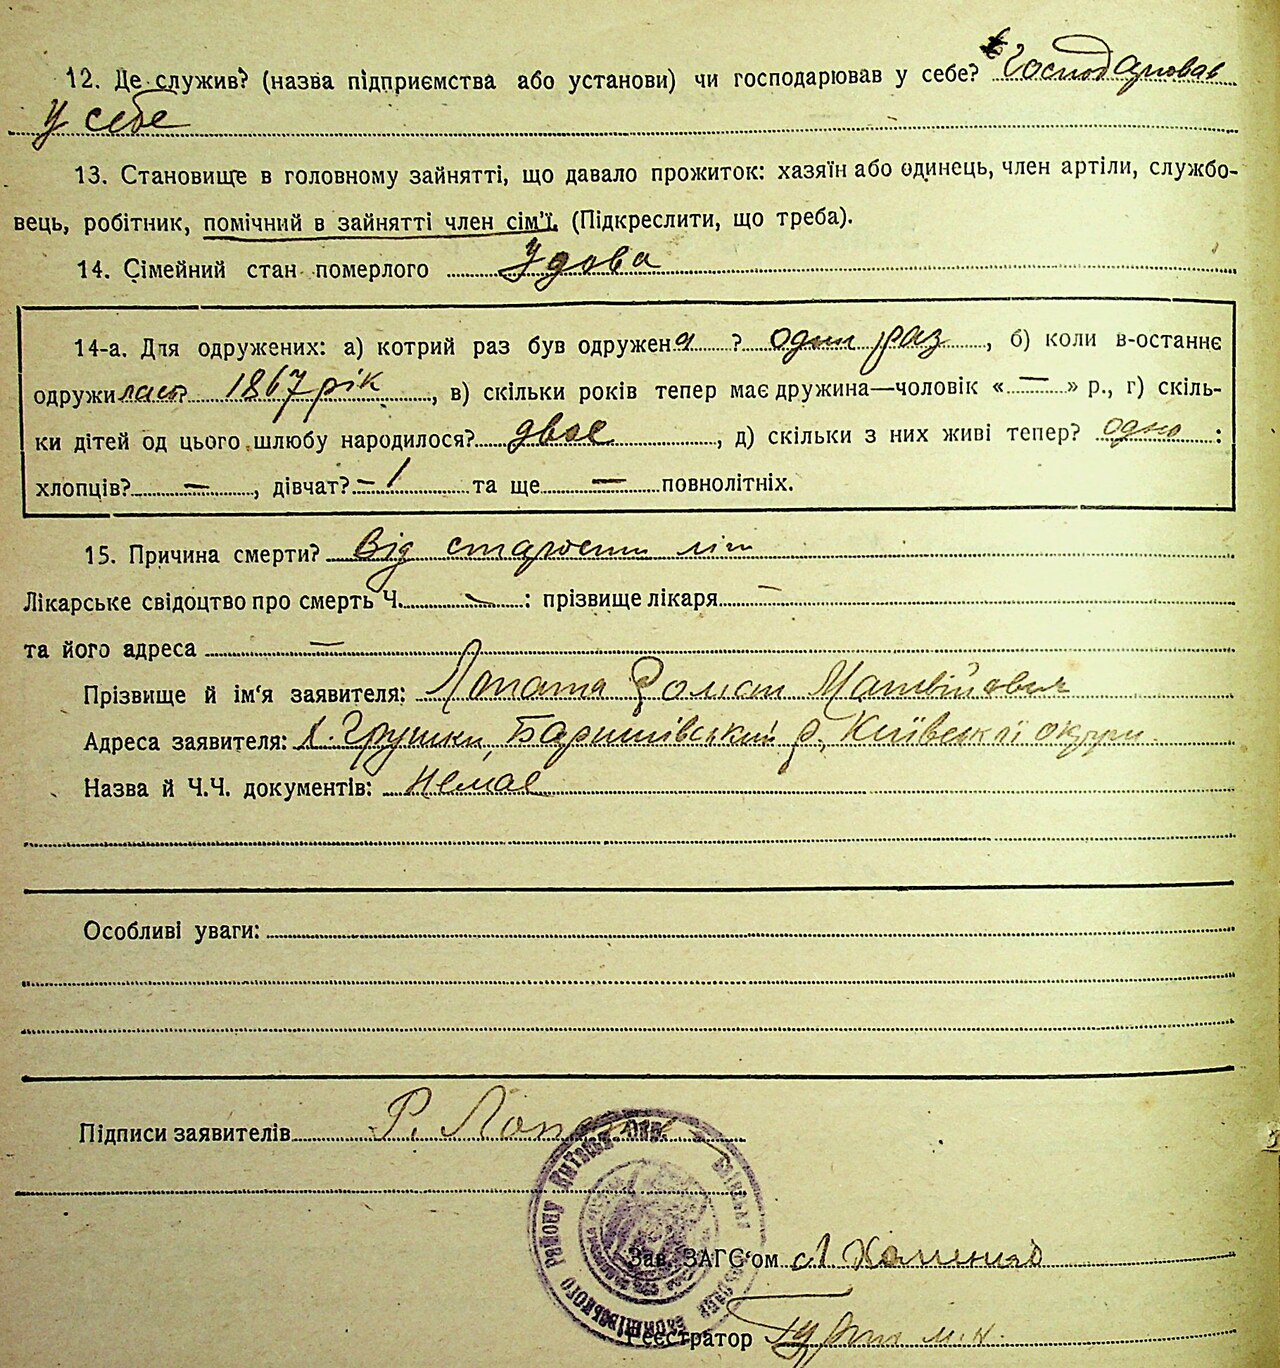 12. Де служив? (назва підприємства або установи) чи господарював у себе? Господарював
у себе
13. Становище в головному зайнятті, що давало прожиток: хазяїн або одинець, член артіли, службо-
вець, робітник, помічний в зайнятті член сім'ї. (Підкреслити, що треба).
14. Сімейний стан померлого Удова
14-а. Для одружених: а) котрий раз був одружена ? один раз, б) коли в-останнє
одружилась 1867 рік, в) скільки років тепер має дружина—чоловік «—» р., г) скіль-
ки дітей од цього шлюбу народилося? двоє, д) скільки з них живі тепер? одно :
хлопців? —, дівчат? – 1 та ще — повнолітніх.
15. Причина смерти? Від старости літ
Лікарське свідоцтво про смерть Ч. — : прізвище лікаря —
та його адреса —
Прізвище й ім'я заявителя: Лопата Роман Матвійович
Адреса заявителя: х. Грушки, Баришівський р., Київської округи
Назва й Ч.Ч. документів: Немає
Особливі уваги:
Підписи заявителів Р. Лопата
Району Київськ. Окр.
Зав. ЗАГС'ом
Реєстратор